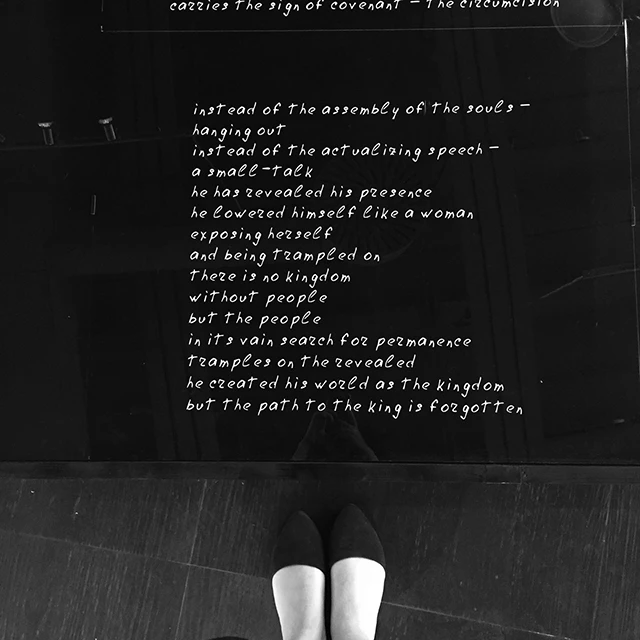 carries the sign of covenant – the circumcision
instead of the assembly of the souls –
hanging out
instead of the actualizing speech –
a small-talk
he has revealed his presence
he lowered himself like a woman
exposing herself
and being trampled on
there is no kingdom
without people
but the people
in its vain search for permanence
tramples on the revealed
he created his world as the kingdom
but the path to the king is forgotten